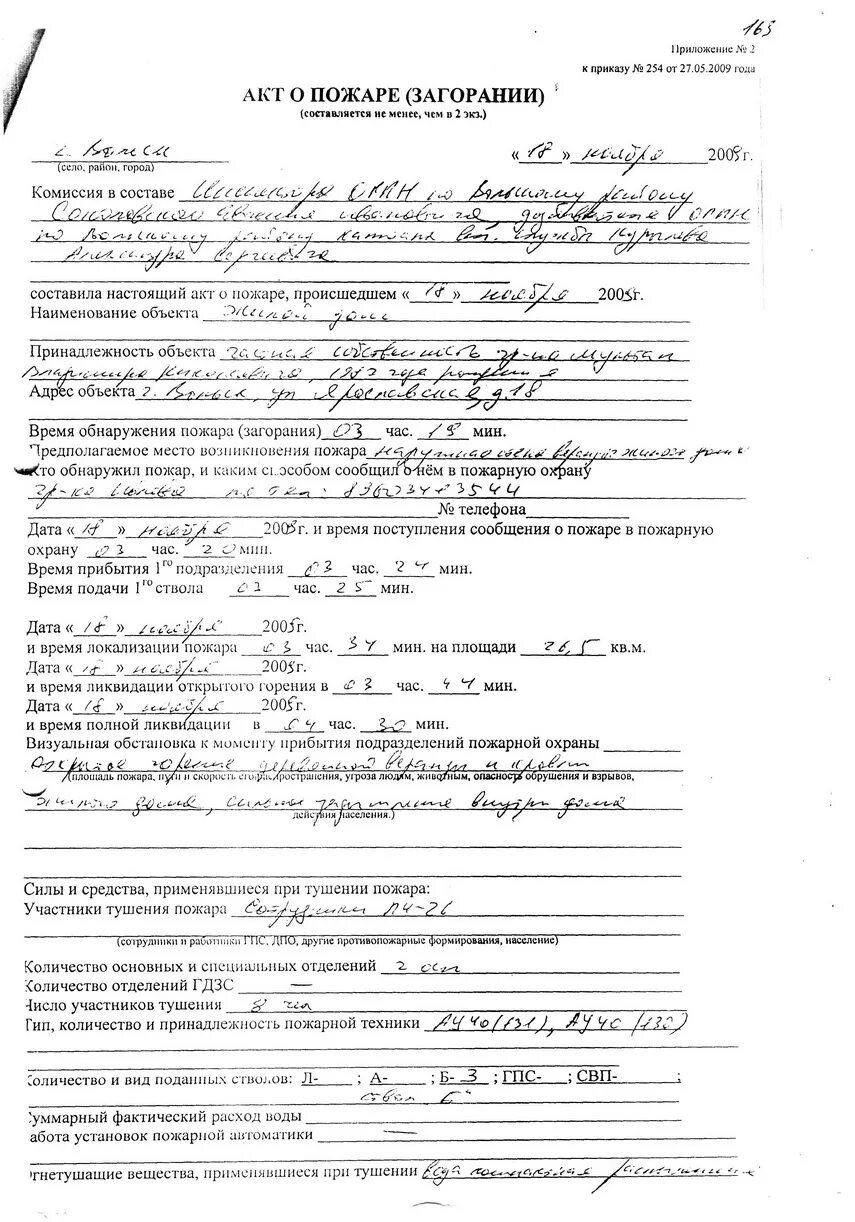 163
Приложение № 2
к приказу № 254 от 27.05.2009 года
АКТ О ПОЖАРЕ (ЗАГОРАНИИ)
(составляется не менее, чем в 2 экз.)
г. « 18 » ноября 2009г.
(село, район, город)
Комиссия в составе по району
по району службы
Александра Сергеевича
составила настоящий акт о пожаре, происшедшем « 18 » ноября 2009г.
Наименование объекта Жилой дом
Принадлежность объекта частная собственность гр-на
Владимира Николаевича, года
Адрес объекта г. ул Ярославская д.18
Время обнаружения пожара (загорания) 03 час. 19 мин.
Предполагаемое место возникновения пожара наружная стена веранды жилого дома
Кто обнаружил пожар, и каким способом сообщил о нём в пожарную охрану
гр-ка по тел:
№ телефона
Дата « 18 » ноября 2009г. и время поступления сообщения о пожаре в пожарную
охрану 03 час. 20 мин.
Время прибытия 1го подразделения 03 час. 24 мин.
Время подачи 1го ствола 03 час. 25 мин.
Дата « 18 » ноября 2009г.
и время локализации пожара 03 час. 34 мин. на площади 26,5 кв.м.
Дата « 18 » ноября 2009г.
и время ликвидации открытого горения в 03 час. 44 мин.
Дата « 18 » ноября 2009г.
и время полной ликвидации в 04 час. 30 мин.
Визуальная обстановка к моменту прибытия подразделений пожарной охраны
открытое горение деревянной веранды и кровли
(площадь пожара, пути и скорость его распространения, угроза людям, животным, опасность обрушения и взрывов,
жилого дома, сильное задымление внутри дома
действия населения.)
Силы и средства, применявшиеся при тушении пожара:
Участники тушения пожара Сотрудники ПЧ-26
(сотрудники и работники ГПС, ДПО, другие противопожарные формирования, население)
Количество основных и специальных отделений 2 отд
Количество отделений ГДЗС —
Число участников тушения 8 чел
Тип, количество и принадлежность пожарной техники АЦ 40 (131), АЦ 40 (130)
Количество и вид поданных стволов: Л- ; А- ; Б- 3 ; ГПС- ; СВП- ;
ствол Б
Суммарный фактический расход воды
абота установок пожарной автоматики —
гнетушащие вещества, применявшиеся при тушении вода